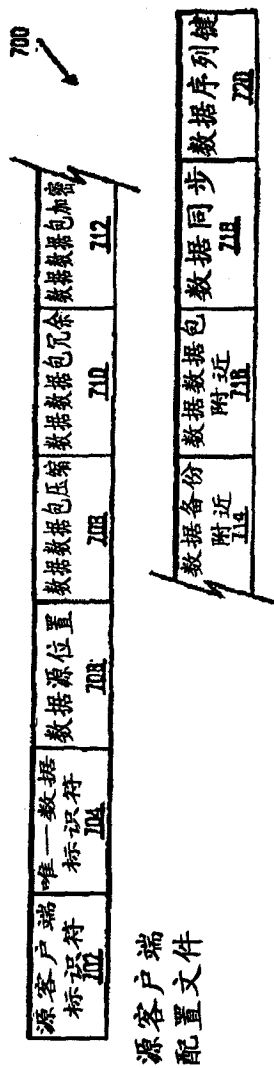 700
源客户端
标识符
702
唯一数据
标识符
704
数据源位置
706
数据数据包压缩
708
数据数据包冗余
710
数据数据包加密
712
数据备份
附近
714
数据数据包
附近
716
数据同步
718
数据序列键
720
源客户端
配置文件